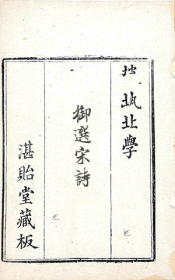 北學
御選宋詩
湛貽堂藏板